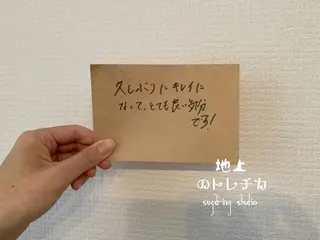 久しぶりにキレイに
なって、とても良い気分
です!
地上
のトレチカ